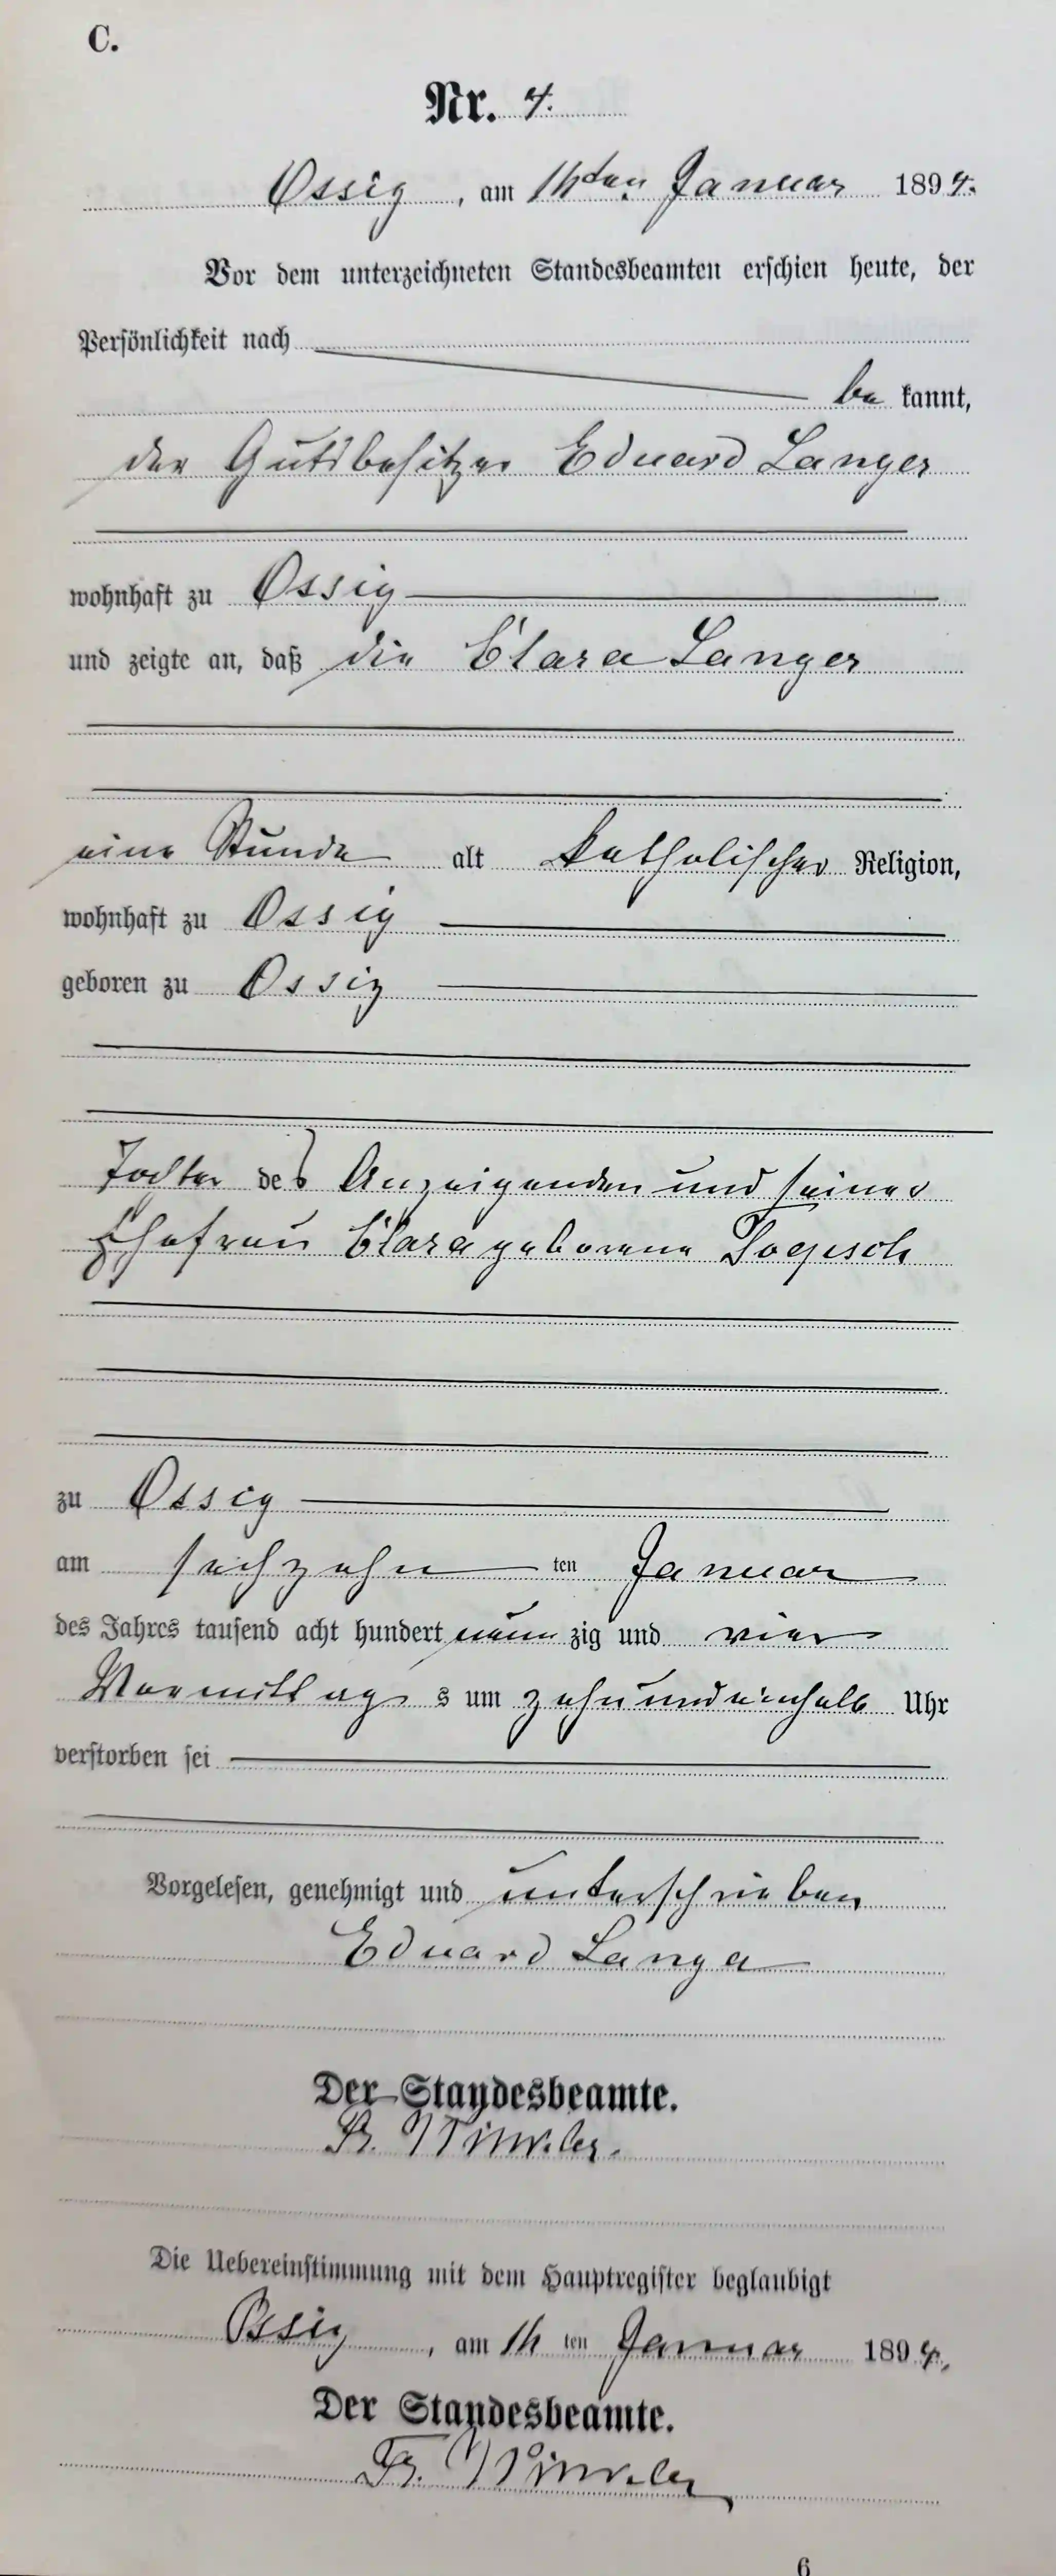 C.
Nr. 4.
Ossig, am 16ten Januar 1894.
Vor dem unterzeichneten Standesbeamten erschien heute, der
Persönlichkeit nach
be kannt,
der Gutsbesitzer Eduard Langer
wohnhaft zu Ossig
und zeigte an, daß die Clara Langer
eine Stunde alt katholischer Religion,
wohnhaft zu Ossig
geboren zu Ossig
Tochter des Anzeigenden und seiner
Ehefrau Clara geborene
zu Ossig
am sechzehn ten Januar
des Jahres tausend acht hundert neun zig und vier
Vormittag s um zehnundeinhalb Uhr
verstorben sei
Vorgelesen, genehmigt und unterschrieben
Eduard Langer
Der Standesbeamte.
Fr. Winkler.
Die Uebereinstimmung mit dem Hauptregister beglaubigt
Ossig, am 16 ten Januar 1894.
Der Standesbeamte.
Fr. Winkler
6